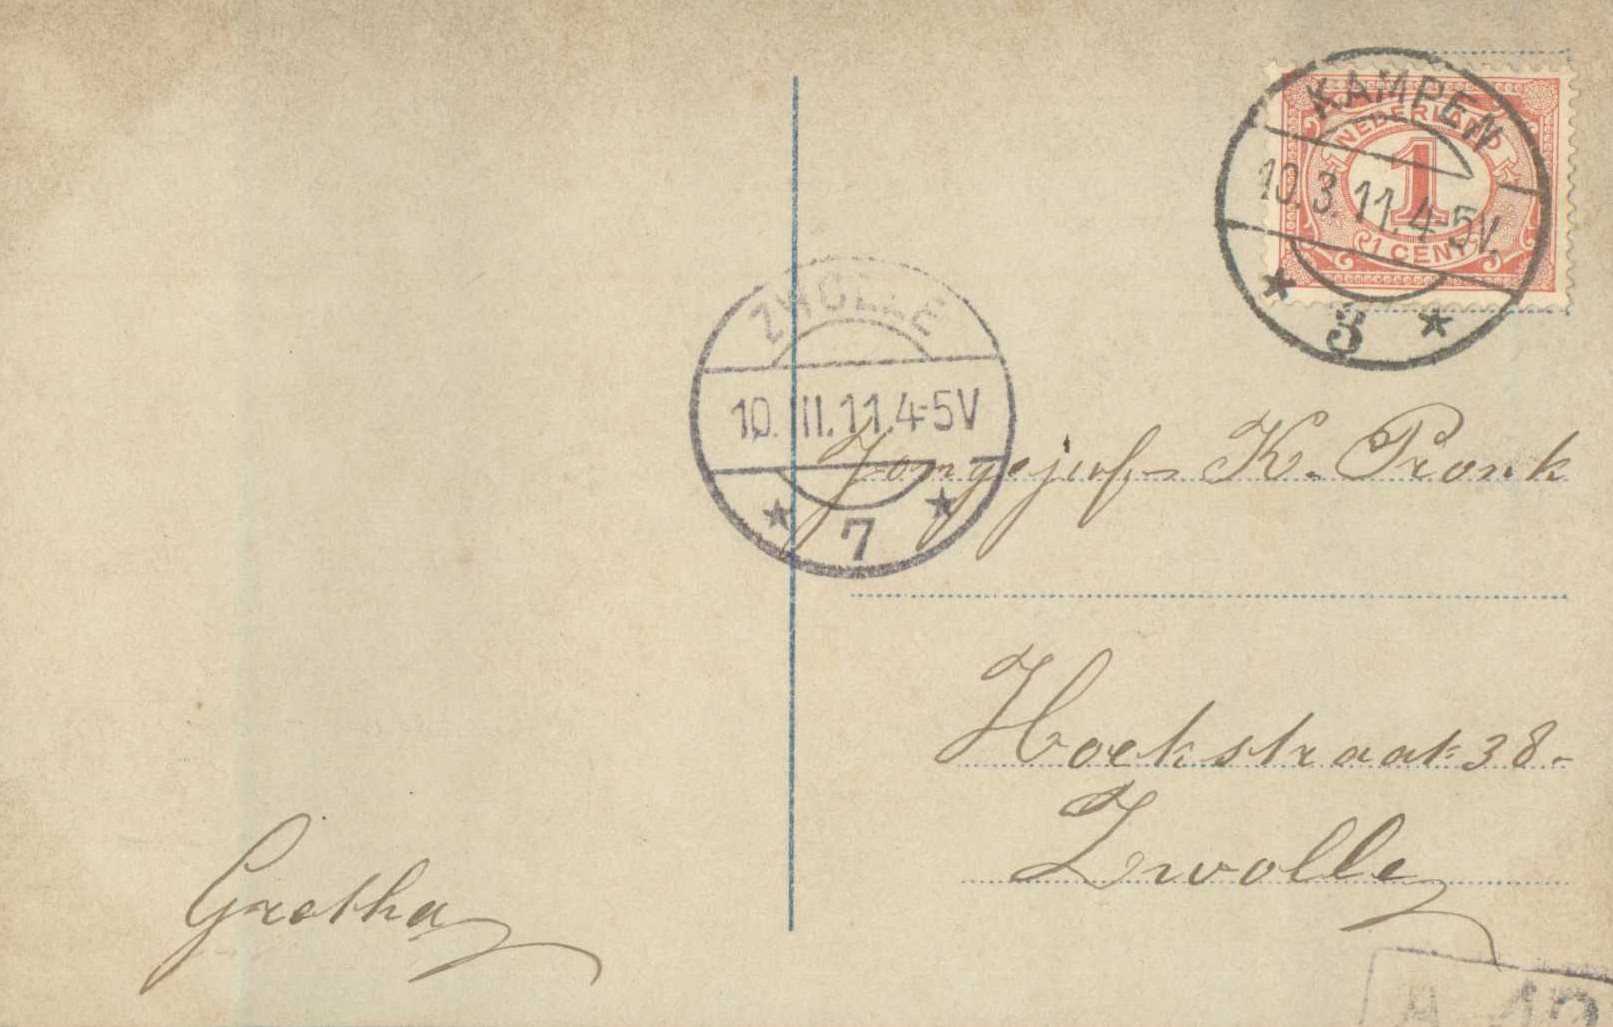 KAMPEN
10.3.11.4-5V.
3
NEDERLAND
1
1 CENT
ZWOLLE
10.III.11.4-5V
7
Jongejufr K. Pronk
Hoekstraat 38.
Zwolle
Gretha